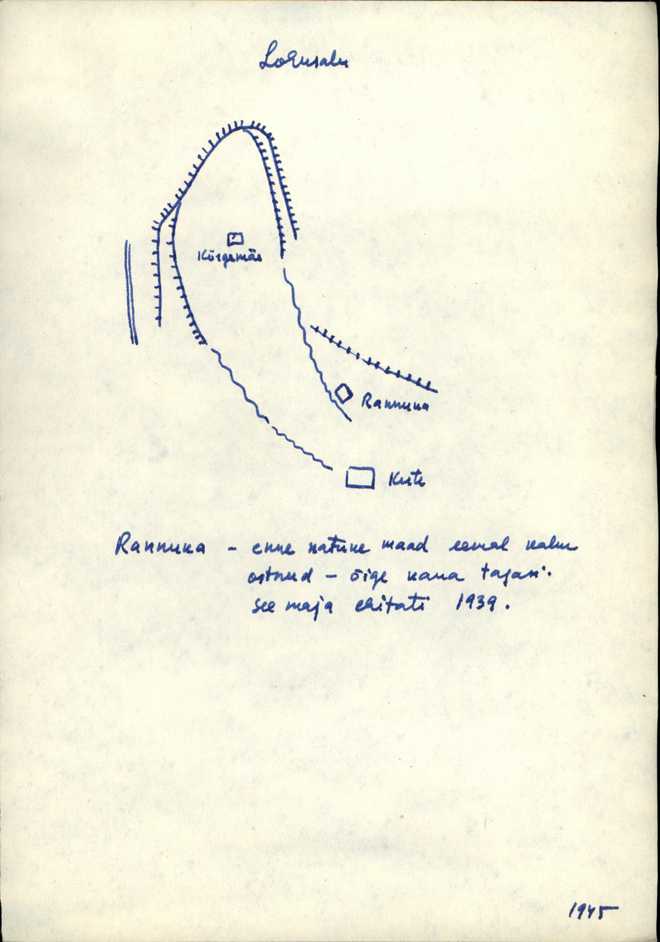 Lohusalu
Kõrgemäe
Rannuka
Kiste
Rannuka – enne natuke maad eemal kalm
ostnud – õige kaua tagasi.
See maja ehitati 1939.
1945